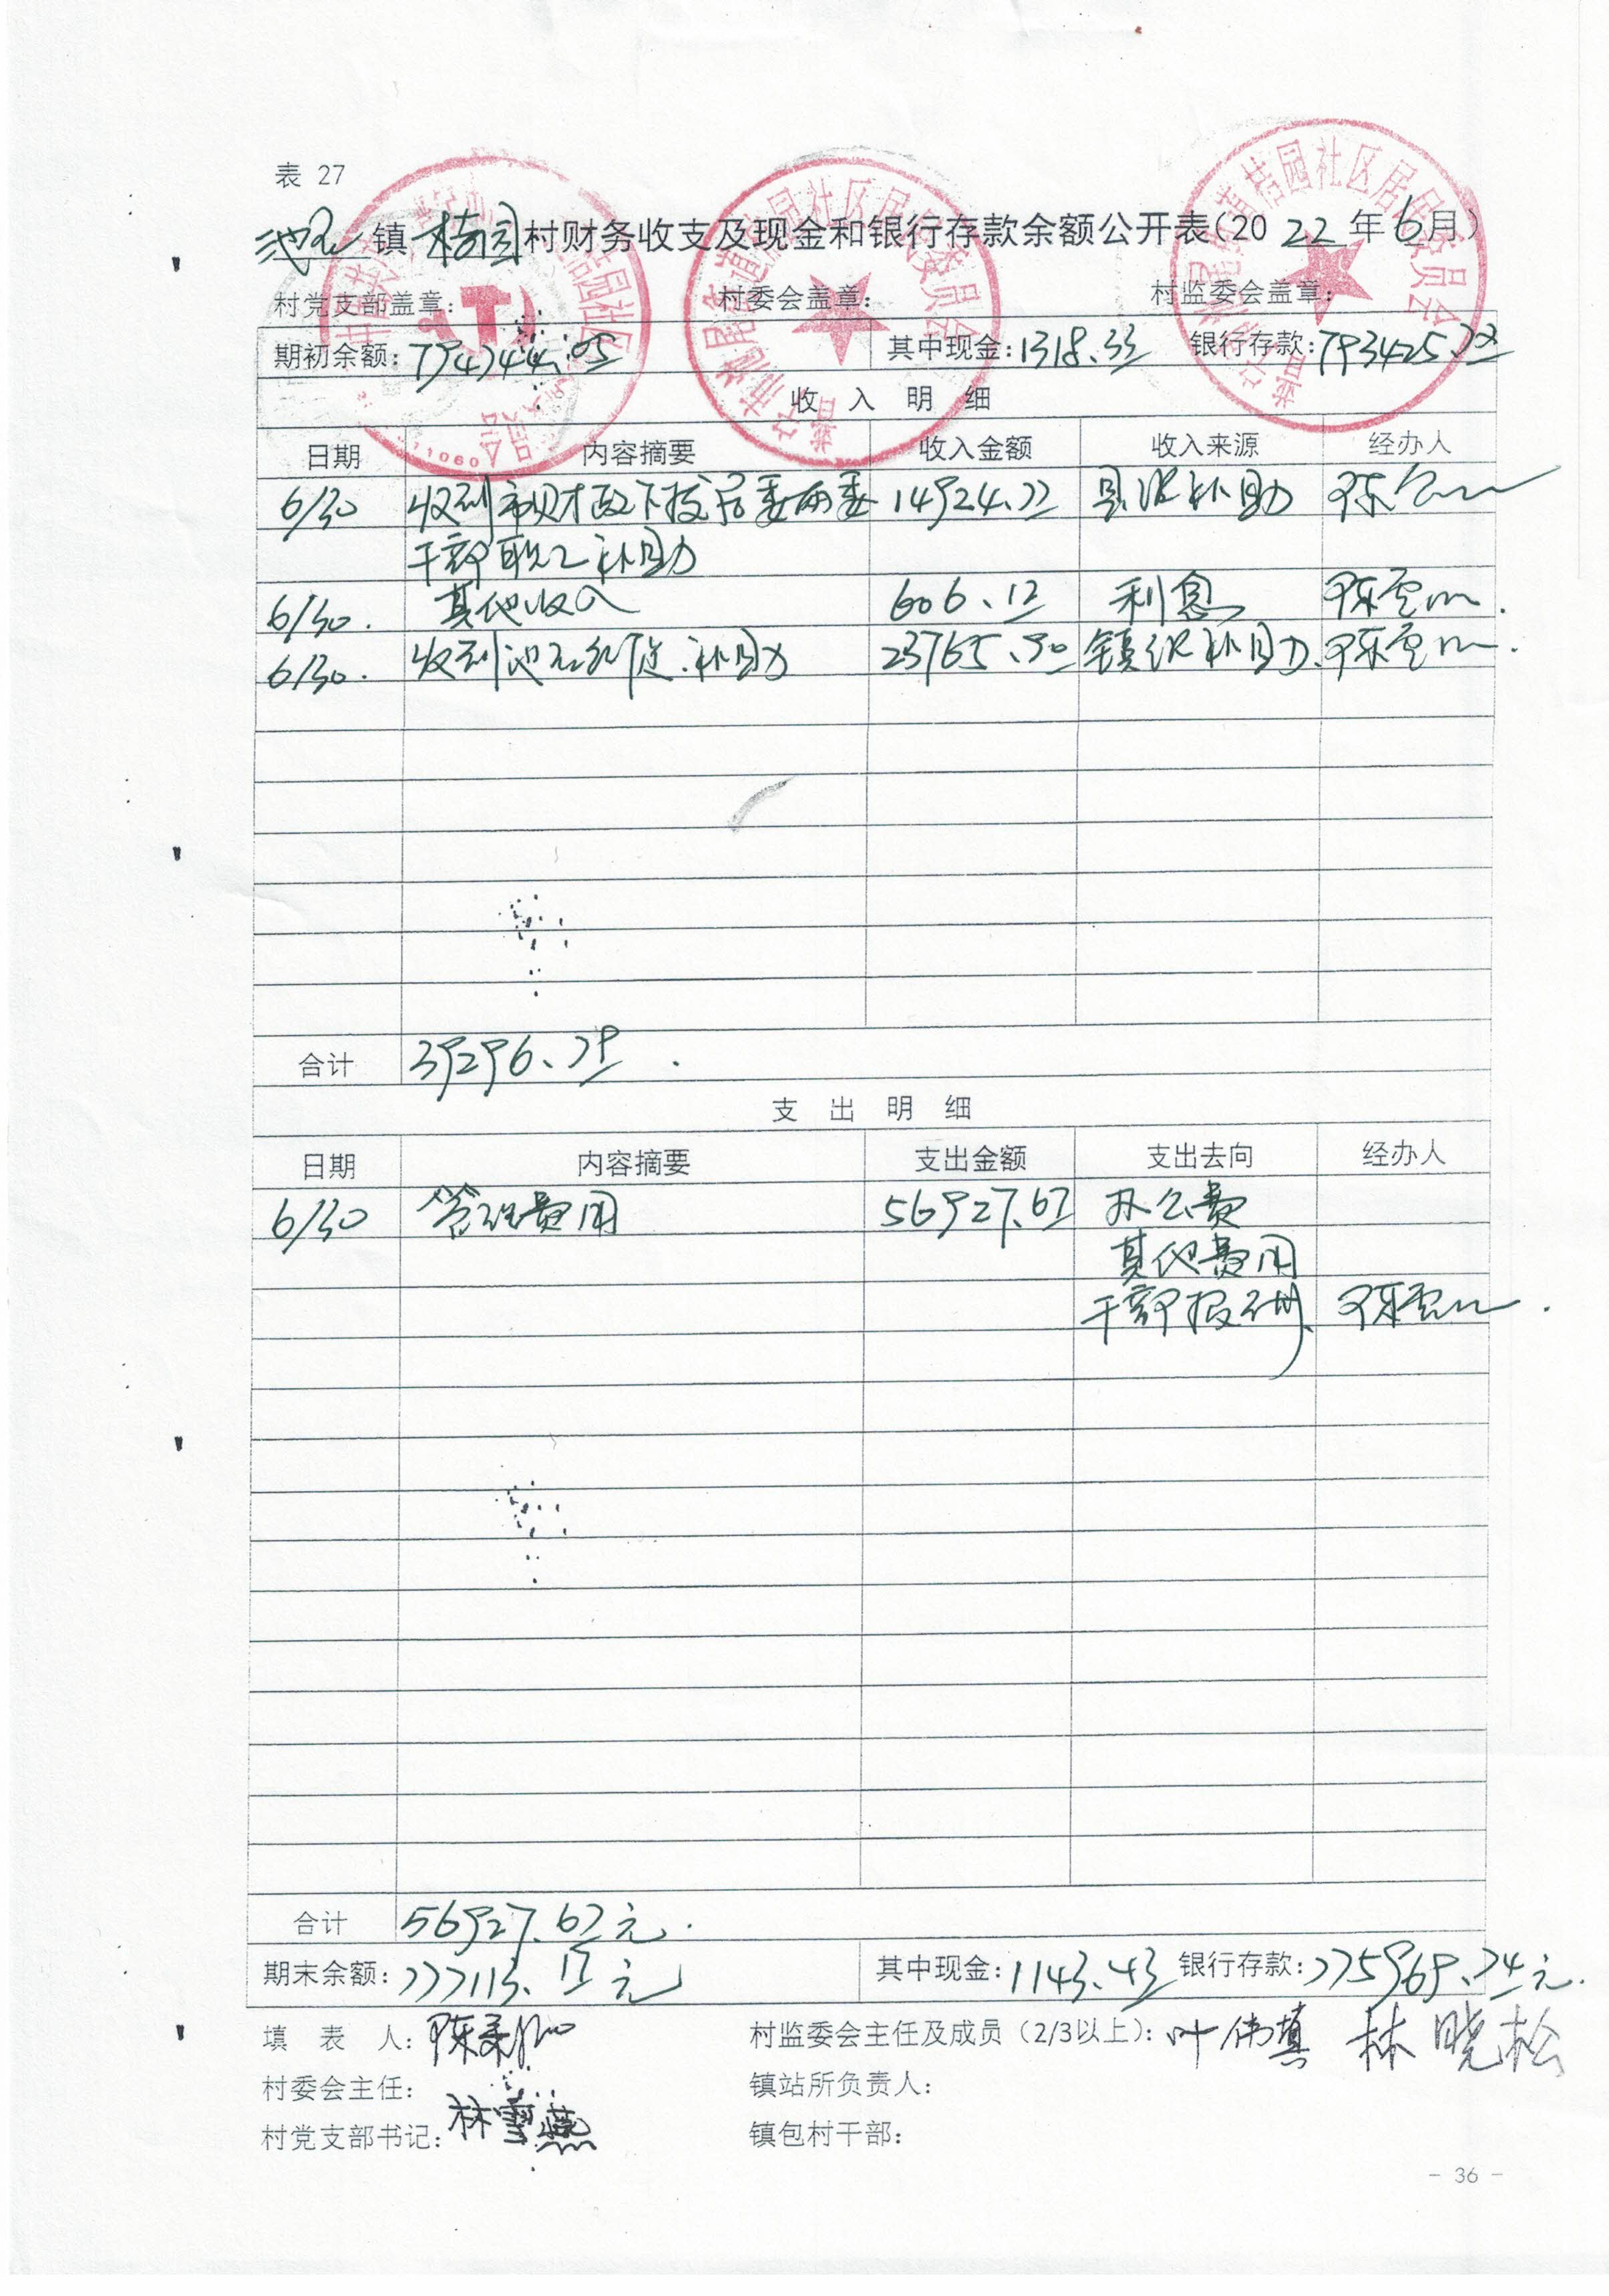 表 27
池尾镇桔园村财务收支及现金和银行存款余额公开表(2022年6月)
村党支部盖章: 村委会盖章: 村监委会盖章:
期初余额:794744.05 其中现金:1318.33 银行存款:793425.72
收 入 明 细
日期 内容摘要 收入金额 收入来源 经办人
6/30 收到市财政下拨居委两委 14924.77 县级补助
干部职工补助
6/30. 其他收入 606.12 利息
6/30. 收到池尾街道补助 23765.90 镇级补助
合计 39296.79
支 出 明 细
日期 内容摘要 支出金额 支出去向 经办人
6/30 管理费用 56927.67 办公费
其他费用
干部报酬
合计 56927.67元
期末余额:777113.17元 其中现金:1143.43 银行存款:775969.74元
填 表 人: 村监委会主任及成员(2/3以上): 叶伟填 林晓松
村委会主任: 镇站所负责人:
村党支部书记: 林雪燕 镇包村干部:
- 36 -